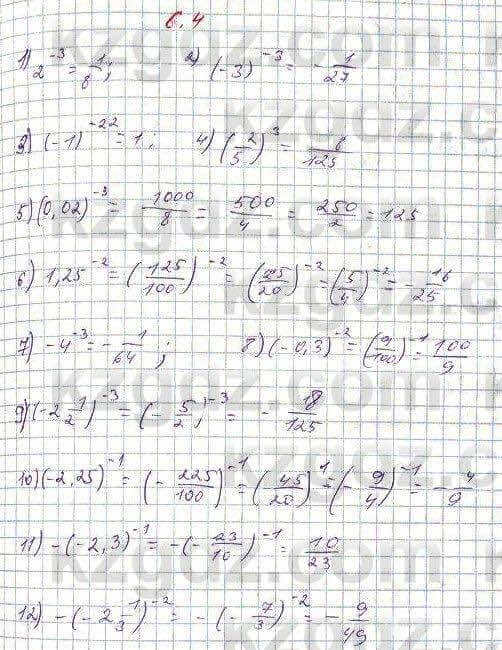 6.4
1) 2^{-3} = 1/8; 2) (-3)^{-3} = - 1/27
3) (-1)^{-22} = 1; 4) (2/5)^3 = 8/125
5) (0,02)^{-3} = 1000/8 = 500/4 = 250/2 = 125
6) 1,25^{-2} = (125/100)^{-2} = (25/20)^{-2} = (5/4)^{-2} = - 16/25
7) -4^{-3} = - 1/64; 8) (-0,3)^{-2} = (9/100)^{-1} = 100/9
9) (-2 1/2)^{-3} = (- 5/2)^{-3} = - 18/125
10) (-2,25)^{-1} = (- 225/100)^{-1} = (45/20)^{-1} = (- 9/4)^{-1} = - 4/9
11) -(-2,3)^{-1} = -(- 23/10)^{-1} = 10/23
12) -(-2 1/3)^{-2} = -(- 7/3)^{-2} = - 9/49